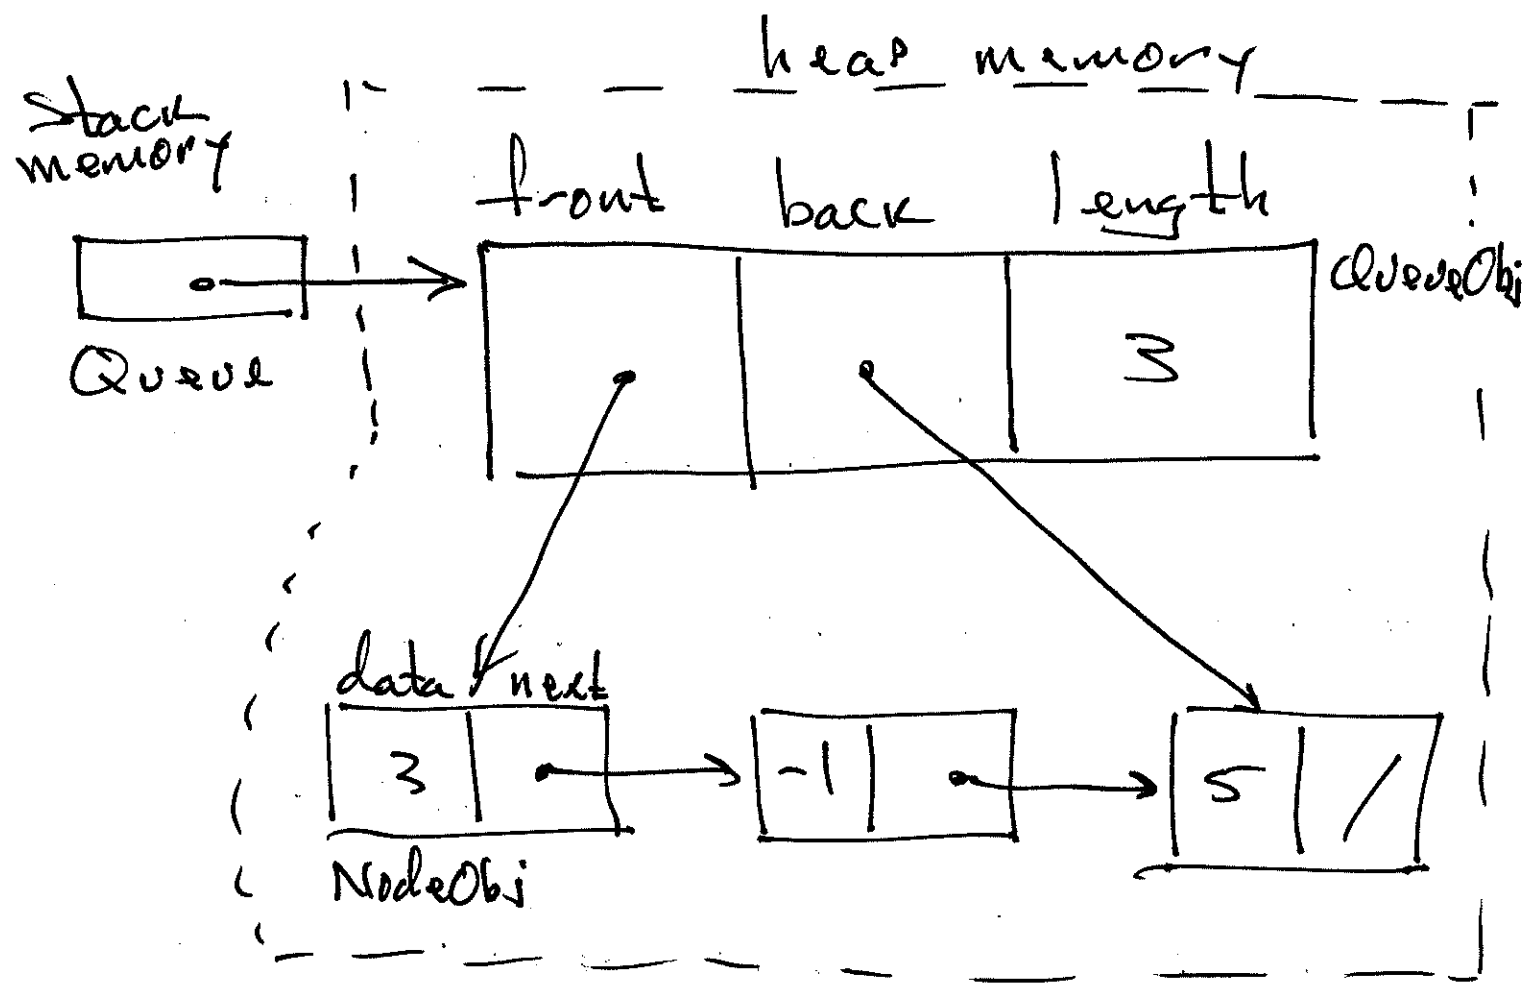 heap memory
stack
memory
front back length
Queue
QueueObj
3
data next
3 -1 5 /
NodeObj